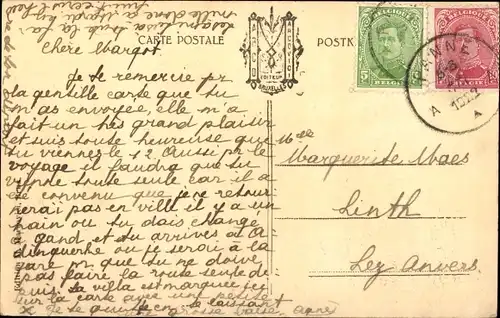 CARTE POSTALE
POSTK
BELGIQUE
5
BELGIE
BELGIQUE
BELGIE
EDITEUR
BRUXELLES
PANNE
A
A
Chère Margot
Je te remercie pr
la gentille carte que tu
m'as envoyée, elle m'a
fait un très grand plaisir
et suis toute heureuse que
tu viennes le 12 Aussi pr le
voyage il faudra que tu
vienne toute seule car il a
été convenu que je ne retour
nerai pas en ville il y a un
train ou tu dois change
a gand et tu arrives a A
dinquerke ou je serai à la
gare pr que tu ne doive
pas faire la route seule de
puis. La villa est marquée ici
sur la carte avec une petite
x Je te quitte en te laissant
grosse baise
Melle
Marguerite Maes
Linth
Lez Anvers